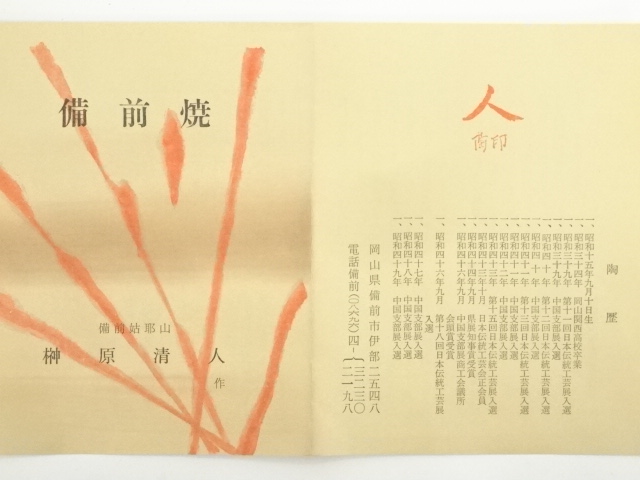 備前焼
備前姑耶山
榊原清人
作
人
陶印
陶歴
一、昭和十五年九月十日生
一、昭和三十四年 岡山関西高校卒業
一、昭和三十九年 第十一回日本伝統工芸展入選
一、昭和三十九年 中国支部展入選
一、昭和四十年 第十二回日本伝統工芸展入選
一、昭和四十年 中国支部展入選
一、昭和四十一年 第十三回日本伝統工芸展入選
一、昭和四十一年 中国支部展入選
一、昭和四十二年 中国支部展入選
一、昭和四十三年 第十五回日本伝統工芸展入選
一、昭和四十三年十月 日本伝統工芸会正会員
一、昭和四十四年九月 県展知事賞受賞
一、昭和四十六年九月 中国支部展商工会議所
会頭賞受賞
一、昭和四十六年九月 第十八回日本伝統工芸展
入選
一、昭和四十七年 中国支部展入選
一、昭和四十八年 中国支部展入選
一、昭和四十九年 中国支部展入選
岡山県備前市伊部二五四八
電話備前(〇八六九六)四-{三二三〇
二一九八